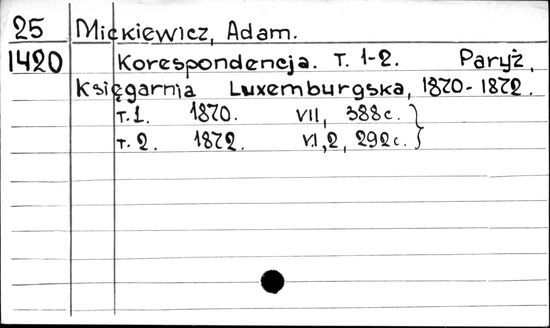 25 Mickiewicz, Adam.
1420 Korespondencja. T. 1-2. Paryż,
Księgarnia Luxemburgska, 1870-1872.
т.1. 1870. VII, 388с.
т.2. 1872. VI,2, 292с.